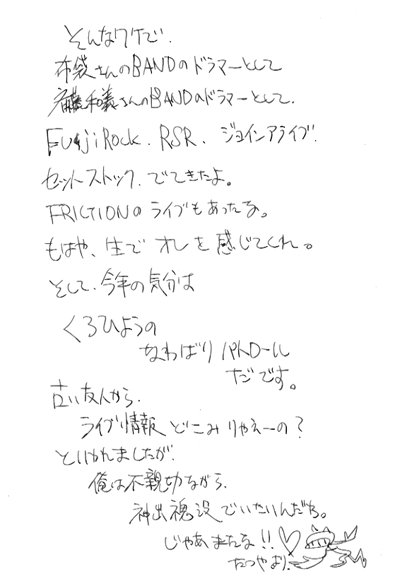 そんなワケで.
布袋さんのBANDのドラマーとして
斉藤和義さんのBANDのドラマーとして.
FUJI Rock. RSR. ジョインアライブ.
セットストック. でてきたよ。
FRICTIONのライブもあったな。
もはや、生で オレを感じてくれ。
そして. 今年の気分は
くろひょうの
なわばりパトロール
だです。
古い友人から.
ライブ情報 どこみりゃえーの?
といわれましたが.
俺は不親切ながら.
神出魂没でいたいんだね。
じゃあまたな!!♡
たつやより.